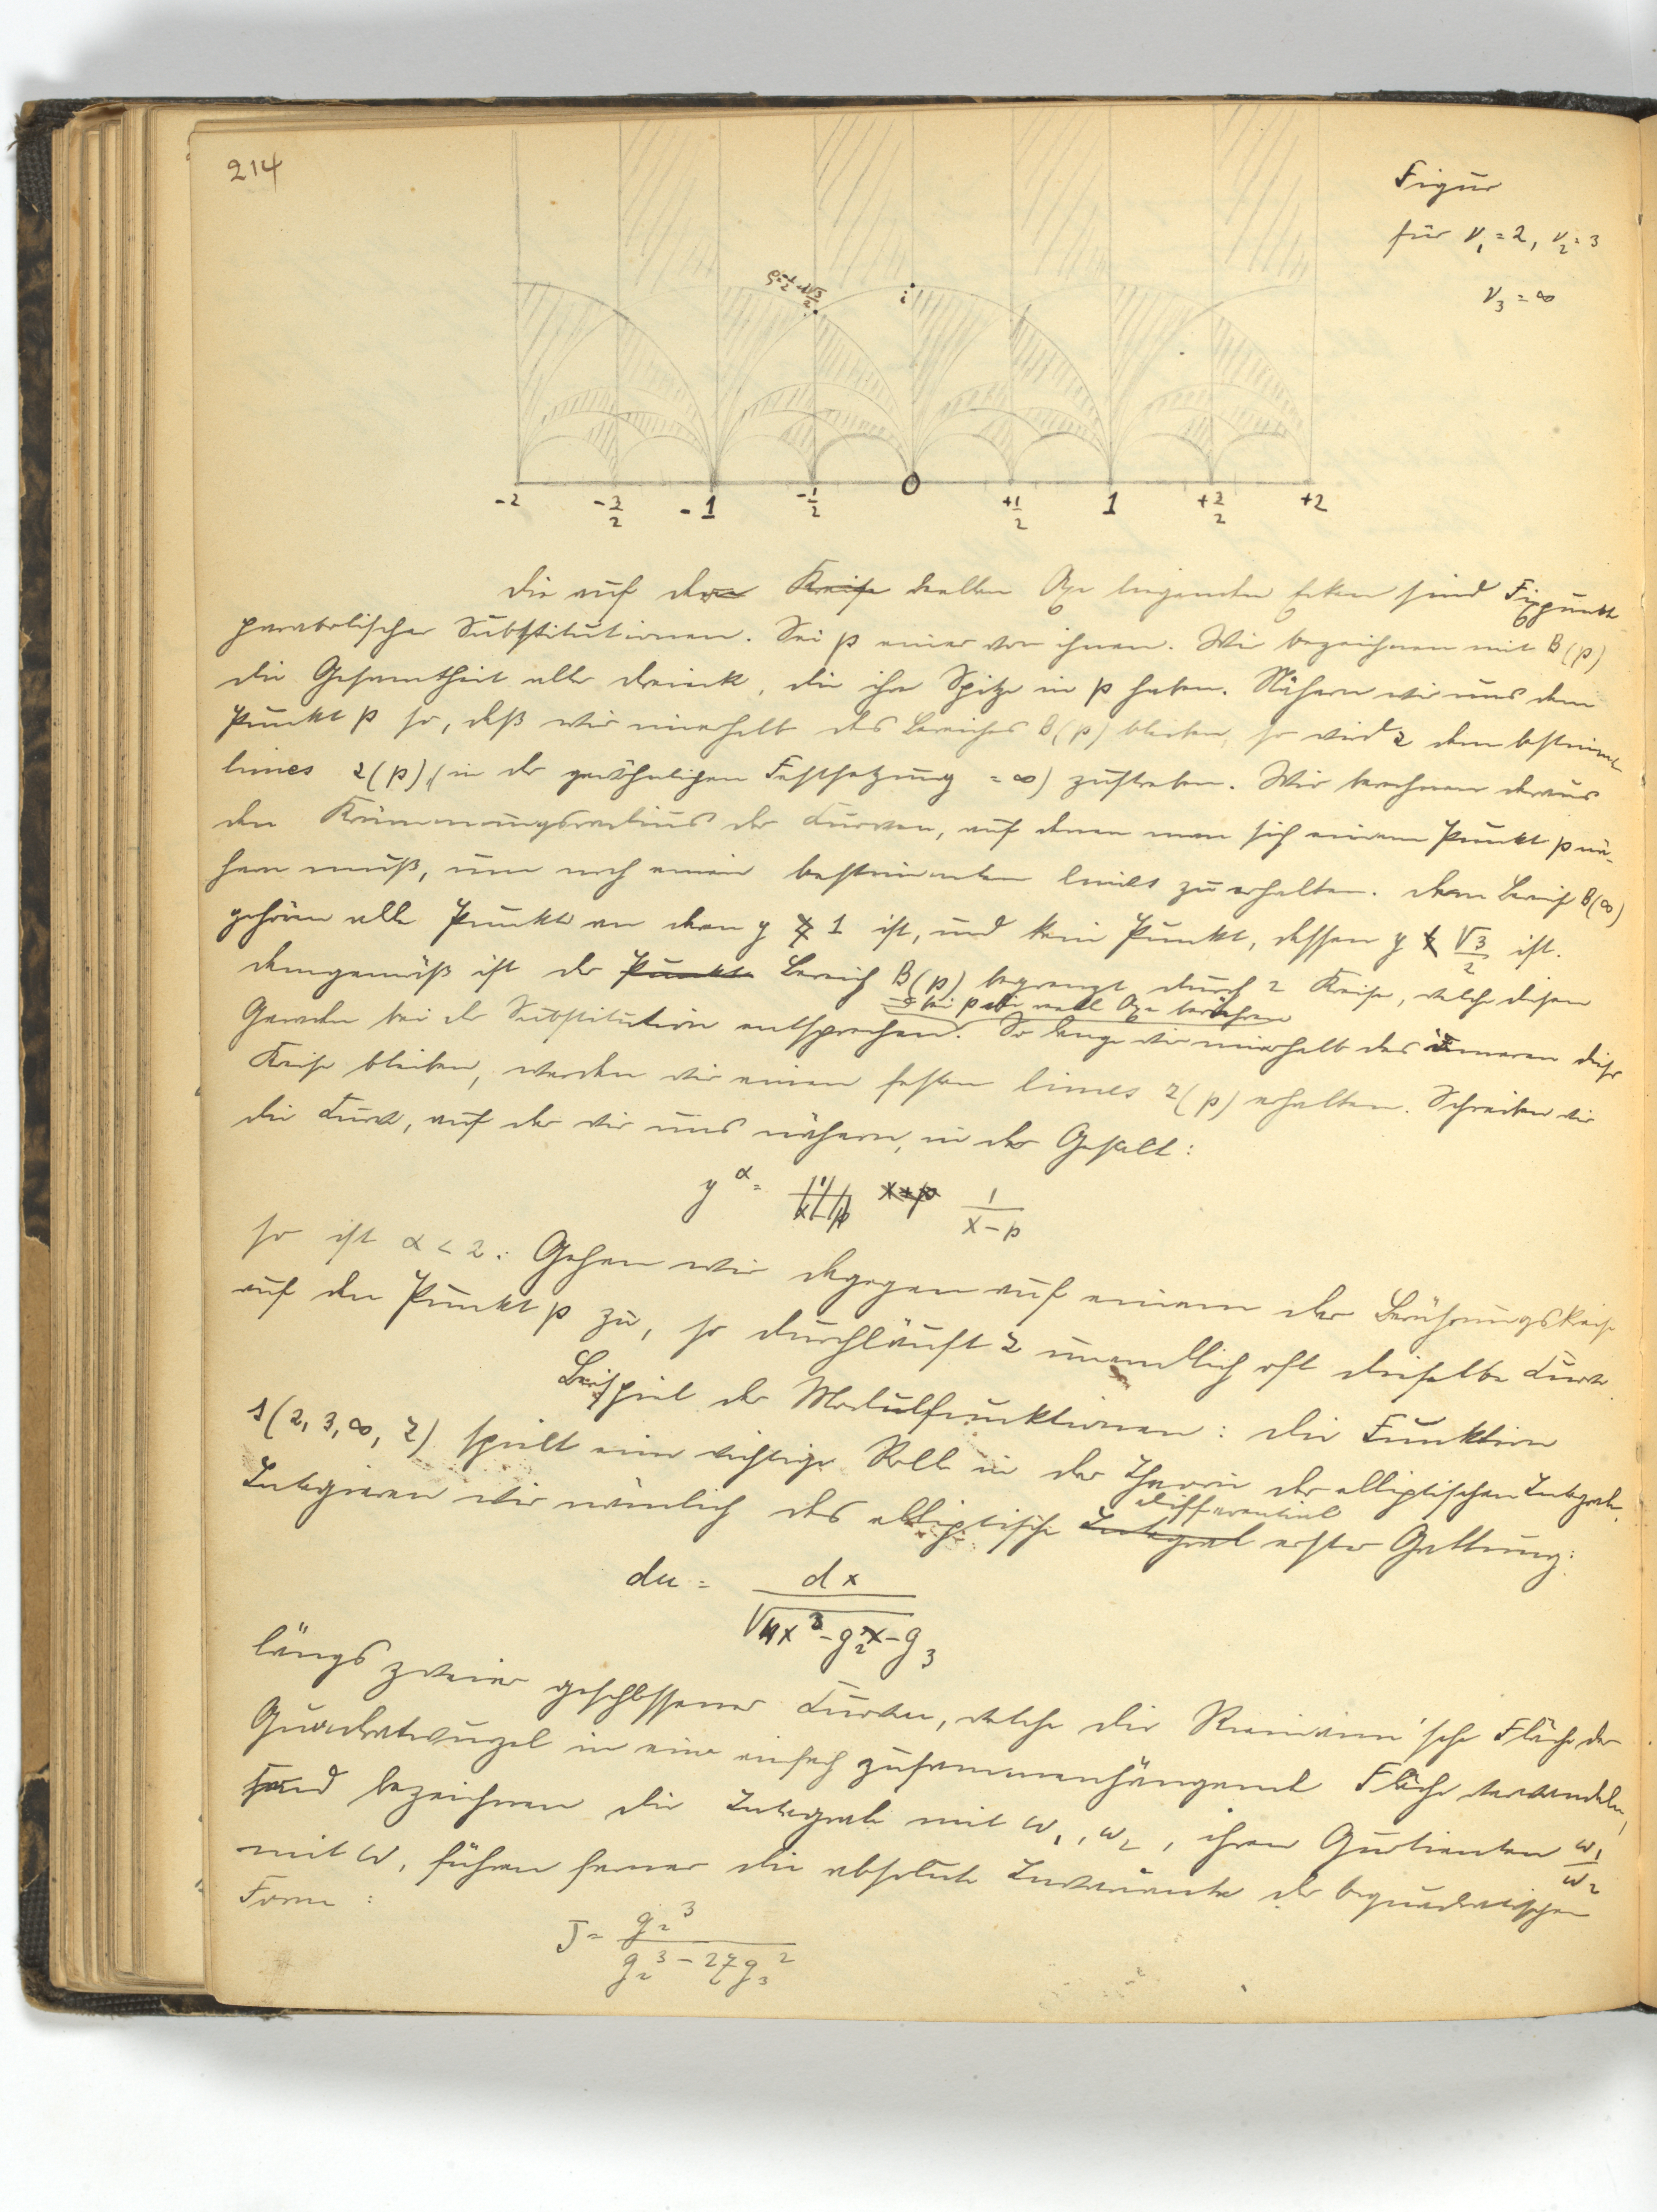 214
Figur
für ν₁ = 2, ν₂ = 3
ν₃ = ∞
ρ = -1/2 + i√3/2
i
-2 -3/2 -1 -1/2 0 +1/2 1 +3/2 +2
Die auf der Kreise reellen Axe liegenden Ecken sind Fixpunkte
parabolischer Substitutionen. Sei p einer von ihnen. Wir bezeichnen mit B(p)
die Gesamtheit aller Dreiecke, die ihre Spitze in p haben. Nähern wir uns dem
Punkt p so, daß wir innerhalb des Bereiches B(p) bleiben, so wird z dem bestimmten
limes z(p), (in der gewöhnlichen Festsetzung = ∞) zustreben. Wir berechnen daraus
den Krümmungsradius der Curven, auf denen man sich einem Punkt p nä-
hern muß, um noch einen bestimmten limes zu erhalten. Dem Bereich B(∞)
gehören alle Punkte an deren y > 1 ist, und kein Punkt, dessen y < √3/2 ist.
Demgemäß ist der Punkte Bereich B(p) begrenzt durch 2 Kreise, welche diesen
die bei p die reelle Axe berühren
Geraden bei der Substitution entsprechen. So lange wir innerhalb des inneren dieser
Kreise bleiben, werden wir einen festen limes z(p) erhalten. Schreiben wir
die Curve, auf der wir uns nähern, in der Gestalt:
y^α = x+p 1/(x-p)
so ist α < 2. Gehen wir dagegen auf einem der Berührungskreise
auf den Punkt p zu, so durchläuft z unendlich oft dieselbe Curve.
Beispiel der Modulfunktionen: Die Funktion
s(2, 3, ∞, z) spielt eine wichtige Rolle in der Theorie der elliptischen Integrale.
Differential
Integrieren wir nämlich das elliptische Integral erster Gattung:
du = dx/√(4x³ - g₂x - g₃)
längs zweier geschlossener Curven, welche die Riemann'sche Fläche der
Quadratwurzel in eine einfach zusammenhängende Fläche verwandeln,
und bezeichnen die Integrale mit ω₁, ω₂, ihren Quotienten ω₁/ω₂
mit ω, führen ferner die absolute Invariante der biquadratischen
Form:
J = g₂³/(g₂³ - 27g₃²)